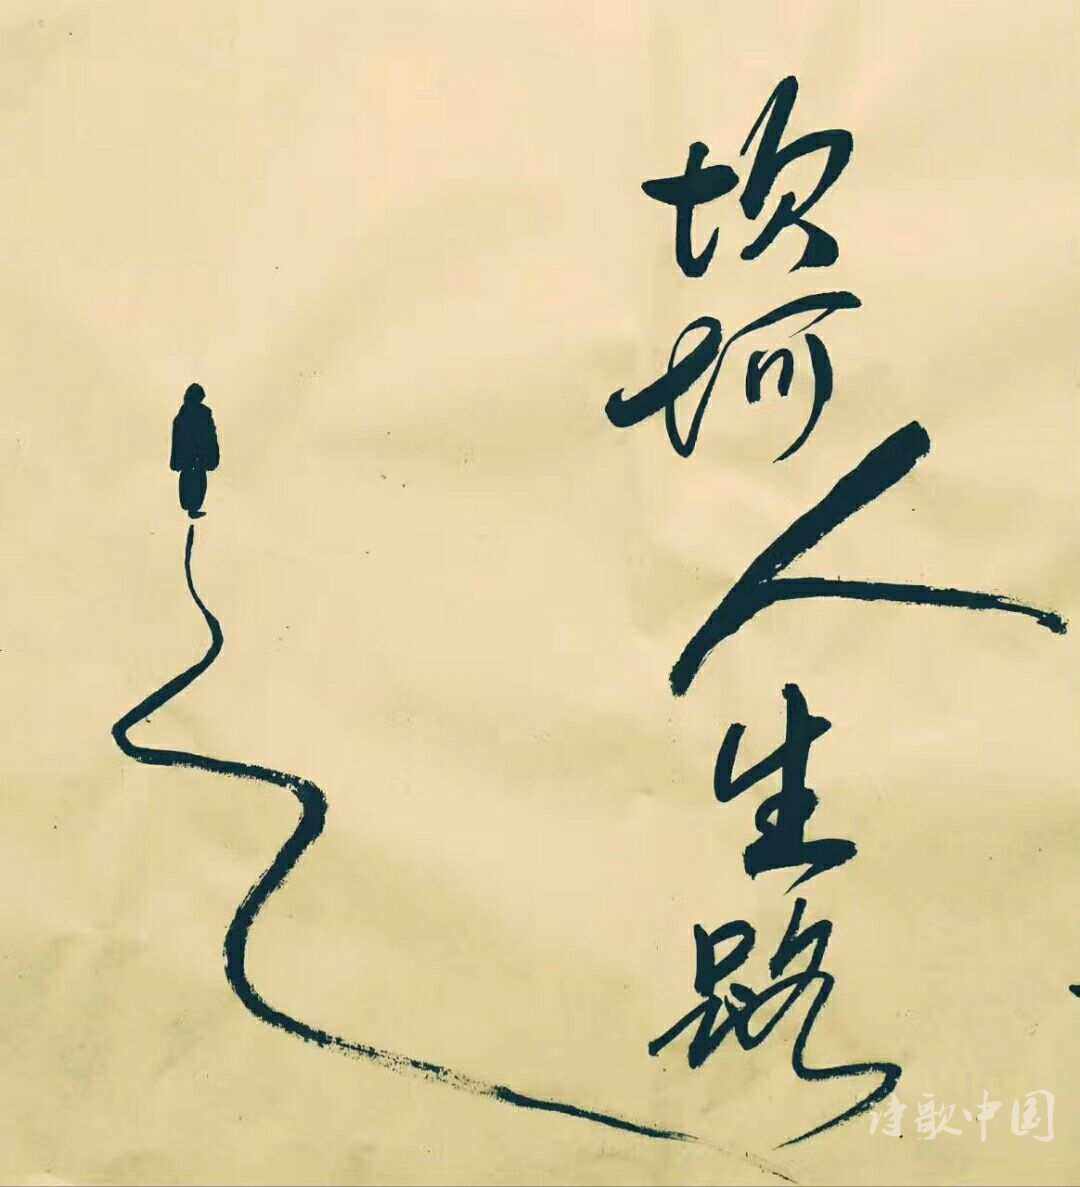 坎坷人生路
诗歌中国